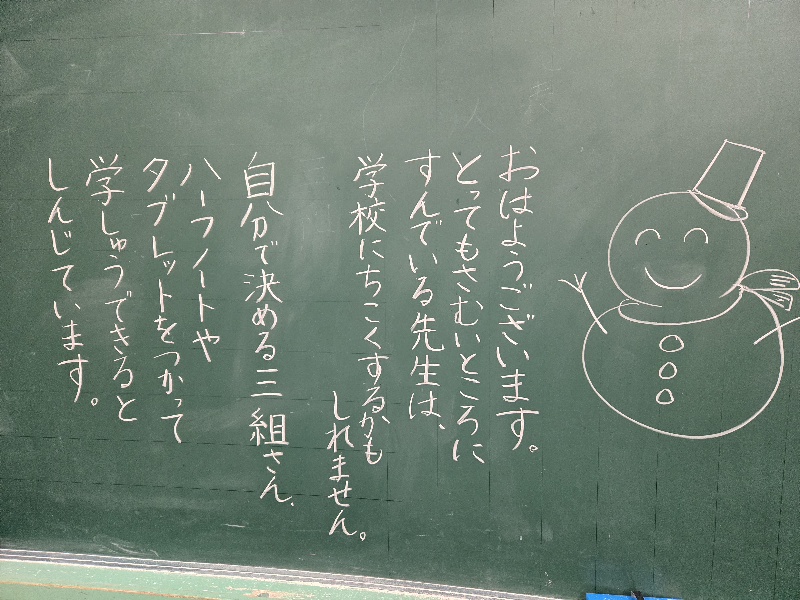 おはようございます。
とってもさむいところに
すんでいる先生は、
学校にちこくするかも
しれません。
自分で決める三組さん、
ハーフノートや
タブレットをつかって
学しゅうできると
しんじています。